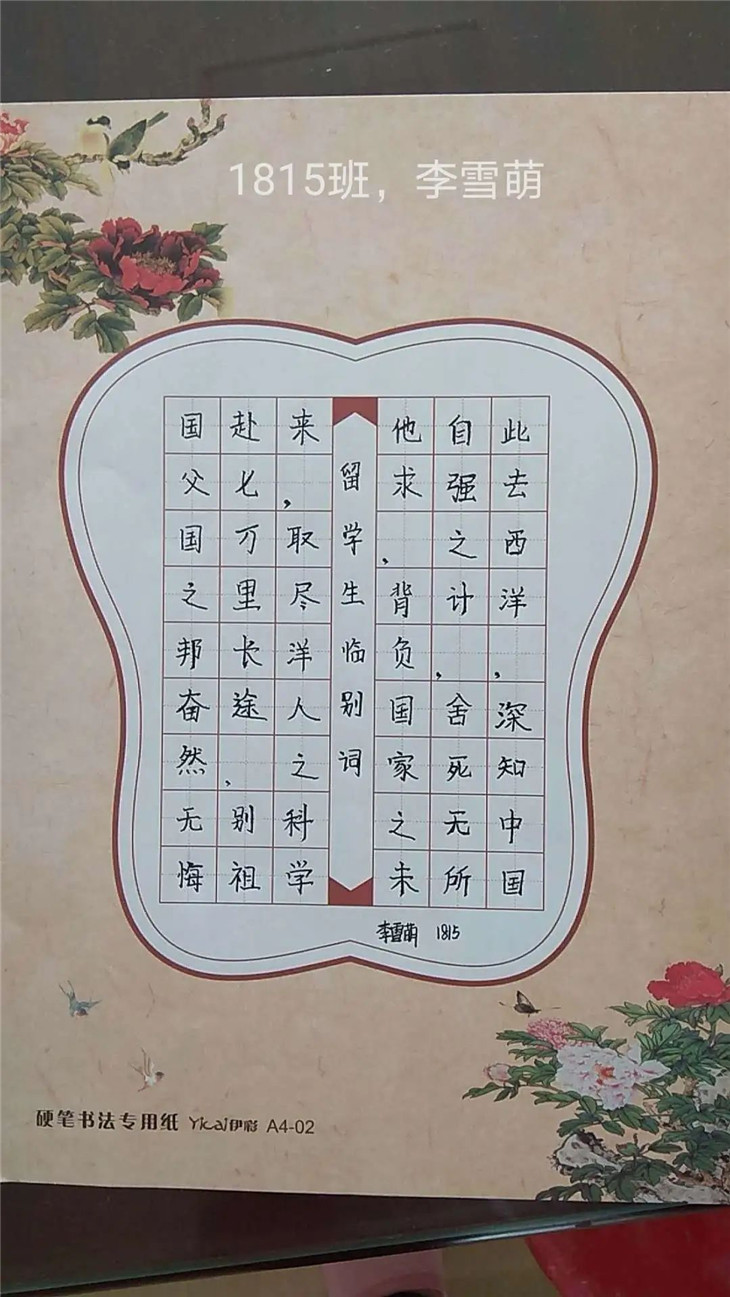 1815班，李雪萌
此去西洋，深知中国
自强之计，舍死无所
他求，背负国家之未
留学生临别词
来，取尽洋人之科学
赴七万里长途，别祖
国父国之邦奋然无悔
李雪萌 1815
硬笔书法专用纸 Yicai伊彩 A4-02